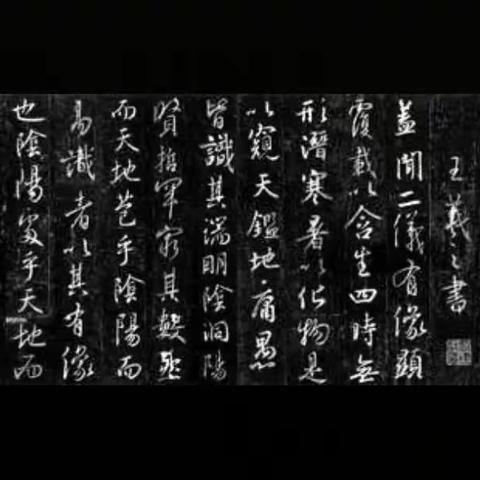 王羲之書
蓋聞二儀有像顯
覆載以含生四時無
形潛寒暑以化物是
以窺天鑑地庸愚
皆識其端明陰洞陽
賢哲罕窮其數然
而天地苞乎陰陽而
易識者以其有像
也陰陽處乎天地而